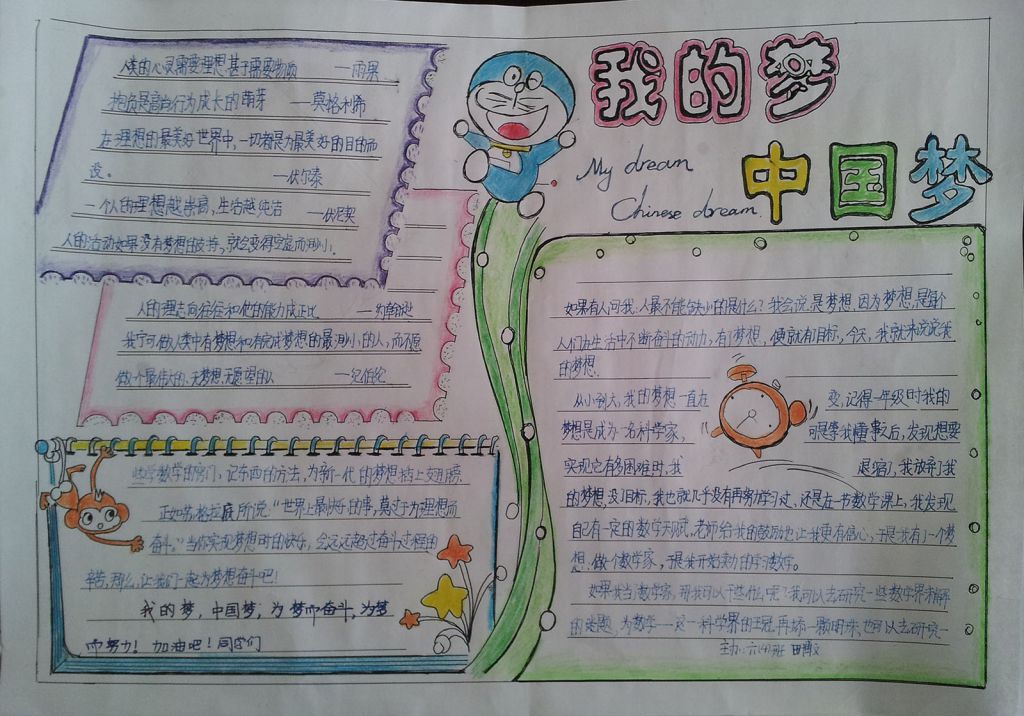 我的梦
中国梦
My dream
Chinese dream
人类的心灵需要理想甚于需要物质 ——雨果
抱负是高尚行为成长的萌芽 ——莫格利希
在理想的最美好世界中,一切都是为最美好的目的而
设。 ——伏尔泰
一个人的理想越崇高,生活越纯洁 ——伏尼契
人的活动如果没有梦想的鼓舞,就会变得空虚而渺小。
人的理志向往往和他的能力成正比 ——约翰逊
我宁可做人类中有梦想和有完成梦想的最渺小的人,而不愿
做个最伟大的、无梦想、无愿望的人 ——纪伯伦
如果有人问我:人最不能缺少的是什么?我会说:是梦想,因为梦想是每个
人们在生活中不断奋斗的动力,有了梦想,便就有目标,今天,我就来说说我
的梦想。
从小到大,我的梦想一直在 变,记得一年级时我的
梦想是成为一名科学家, 可是等我懂事之后,发现想要
实现它有多困难时,我 退缩了,我放弃了我
的梦想,没目标,我也就几乎没有再努力学习过,还是在一节数学课上,我发现
自己有一定的数学天赋,老师给我的鼓励也让我更有信心,于是我有了一个梦
想,做个数学家,于是我开始努力的学习数学。
如果我当了数学家,那我可以干些什么呢?我可以去研究一些数学界未解
的迷题,为数学——这一科学界的王冠,再添一颗明珠,也可以去研究一
主办:六(4)班 田博文
些学数学的窍门、记东西的方法,为新一代的梦想插上交通翅膀。
正如苏格拉底所说:“世界上最快乐的事,莫过于为理想而
奋斗。”当你实现梦想时的快乐,会远远超过奋斗过程的
辛苦,那么,让我们一起为梦想奋斗吧!
我的梦,中国梦,为梦而奋斗,为梦
而努力!加油吧!同学们